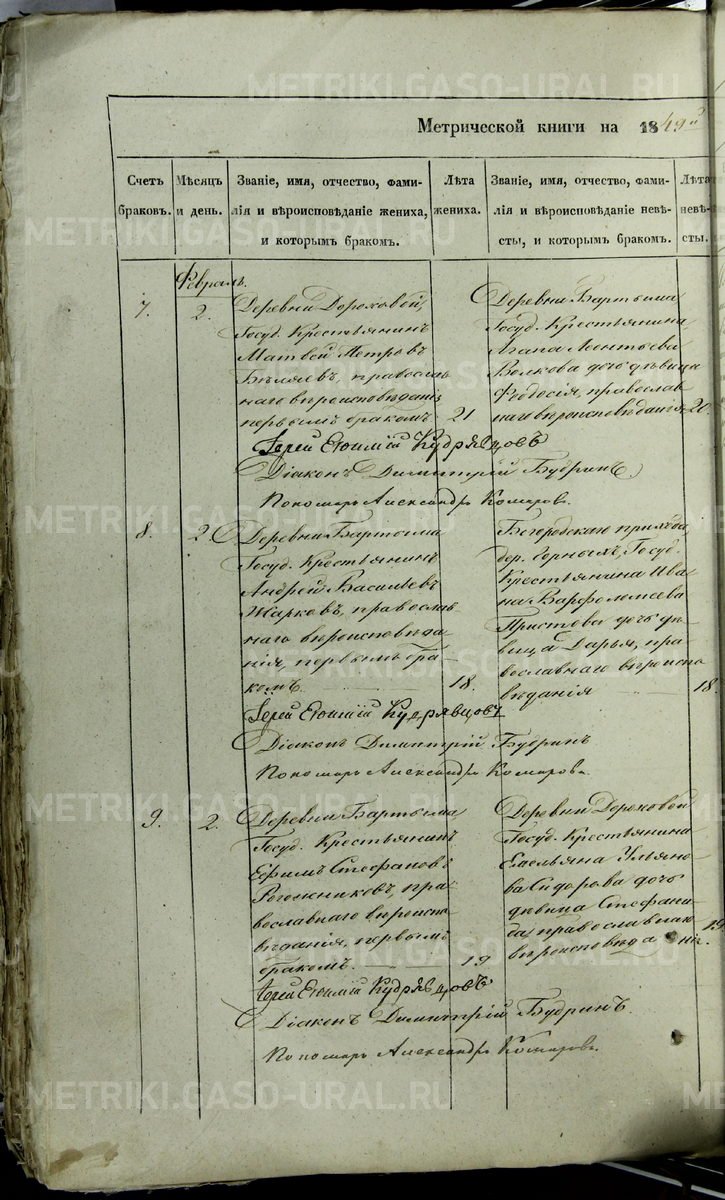 METRIKI.GASO-URAL.RU
Метрической книги на 1849й
Счетъ браковъ.
Мѣсяцъ и день.
Званіе, имя, отчество, фами-
лія и вѣроисповѣданіе жениха,
и которымъ бракомъ.
Лѣта жениха.
Званіе, имя, отчество, фами-
лія и вѣроисповѣданіе невѣ-
сты, и которымъ бракомъ.
Лѣта невѣ-
сты.
Февраль.
7.
2.
Деревни Дороховой,
Госуд. Крестьянинъ
Матвей Петровъ
Бѣляевъ, православ
наго вѣроисповѣданія
первымъ бракомъ
21
Деревни Бартыма
Госуд. Крестьянина
Леонтьева
Волкова дочь дѣвица
Феодосія, православ
наго вѣроисповѣданія
20.
Іерей Евфимій Кудрявцовъ
Діаконъ Димитрій Будринъ
Пономарь Александръ Комаровъ.
8.
2
Деревни Бартыма
Госуд. Крестьянинъ
Андрей Васильевъ
Жарковъ, православ
наго вѣроисповѣда-
нія, первымъ бра-
комъ.
18.
прихода,
дер. Госуд.
Крестьянина Ива
на Варфоломеева
Пристова дочь дѣ-
вица Дарья, пра-
вославнаго вѣроиспо
вѣданія
18.
Іерей Евфимій Кудрявцовъ
Діаконъ Димитрій Будринъ
Пономарь Александръ Комаровъ.
9.
2.
Деревни Бартыма
Госуд. Крестьянинъ
Ефимъ Стефановъ
Рогожниковъ, пра-
вославнаго вѣроиспо-
вѣданія, первымъ
бракомъ.
19
Деревни Дороховой
Госуд. Крестьянина
Емельяна Ульяно-
ва Сидорова дочь
дѣвица Стефани-
да, православнаго
вѣроисповѣданія.
19
Іерей Евфимій Кудрявцовъ
Діаконъ Димитрій Будринъ.
Пономарь Александръ Комаровъ.